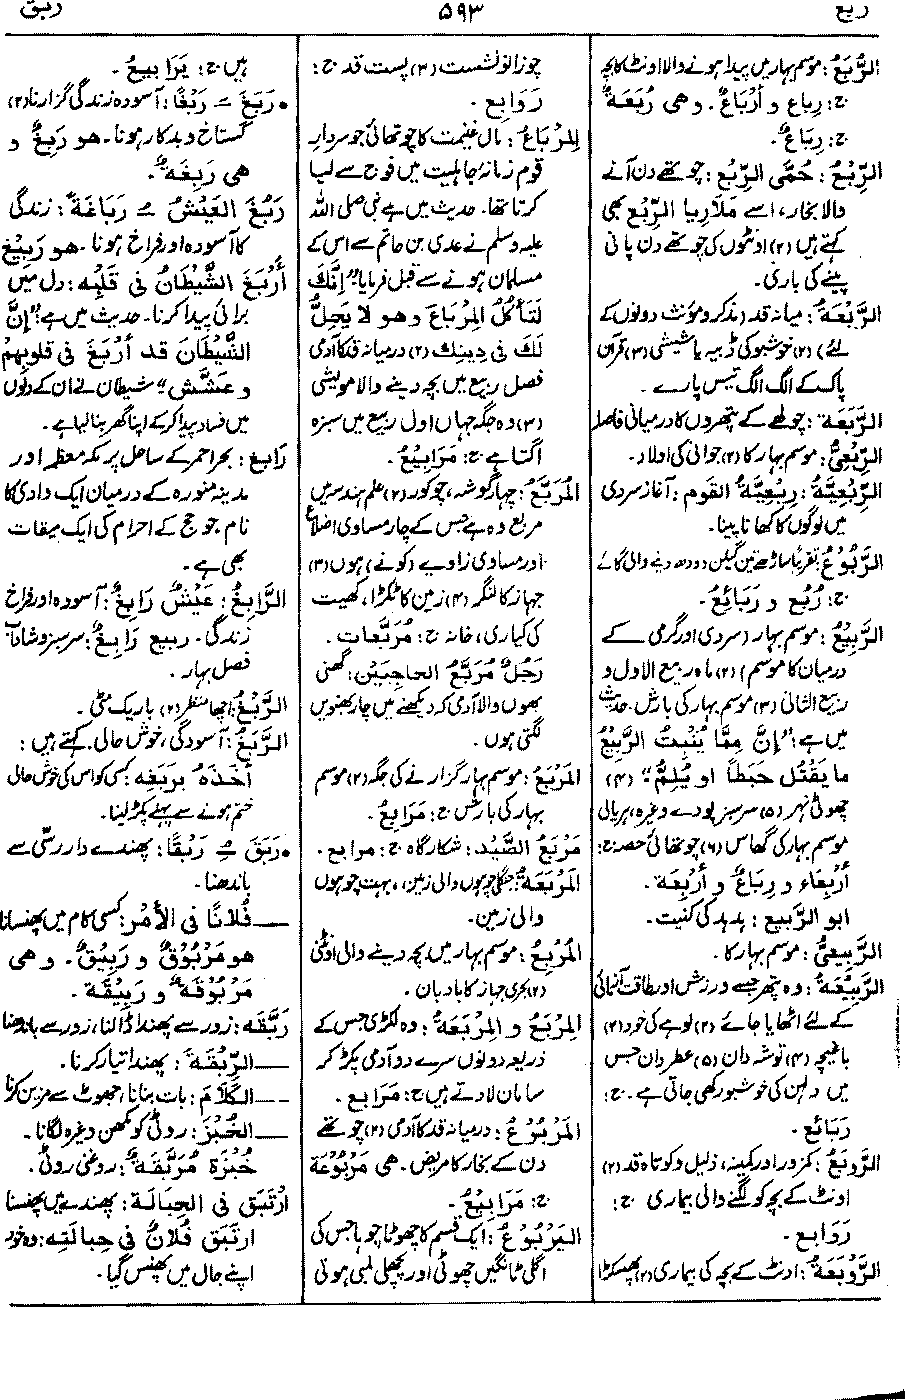 ربع
۵۹۳
ربق
الرُّبَعُ: موسم بہار میں پیدا ہونے والا اونٹ کا بچہ
ج: رِباع و أَرْباعٌ. و هی رُبَعَةٌ
ج: رِباعٌ.
الرِّبْعُ: حُمَّی الرِّبْعِ: چوتھے دن آنے
والا بخار، اسے مَلَاریا الرِّبْع بھی
کہتے ہیں (۲) اونٹوں کی چوتھے دن پانی
پینے کی باری۔
الرَّبْعَةُ: میانہ قد (مذکر و مؤنث دونوں کے
لئے) (۲) خوشبو کی ڈبیہ یا شیشی (۳) قرآن
پاک کے الگ الگ تیس پارے۔
الرَّبَعَة: چولھے کے پتھروں کا درمیانی فاصلہ
الرِّبْعِیُّ: موسم بہار کا (۲) جوانی کی اولاد۔
الرِّبْعِیَّةُ: رِبْعِیَّةُ القوم: آغاز سردی
میں لوگوں کا کھانا پینا۔
الرَّبُوعُ: تقریباً ساڑھے تین گیلن دودھ دینے والی گائے
ج: رُبُع و رَبَائِعُ.
الرَّبِیْعُ: موسم بہار (سردی اور گرمی کے
درمیان کا موسم) (۲) ماہ ربیع الاول و
ربیع الثانی (۳) موسم بہار کی بارش۔ حدیث
میں ہے: "إِنَّ مِمَّا یُنْبِتُ الرَّبِیْعُ
ما یَقْتُل حَبَطاً او یُلِمُّ" (۴)
چھوٹی نہر (۵) سرسبز پودے وغیرہ، ہریالی
موسم بہار کی گھاس (۶) چوتھائی حصہ ج:
أَرْبِعَاء و رِباعٌ و أَرْبِعَة.
ابو الرَّبیع: ہدہد کی کنیت۔
الرَّبِیعیُّ: موسم بہار کا۔
الرَّبِیْعَةُ: وہ پتھر جسے ورزش اور طاقت آزمائی
کے لئے اٹھایا جائے (۲) لوہے کی خود (۳)
باغیچہ (۴) توشہ دان (۵) عطر دان جس
میں دلہن کی خوشبو رکھی جاتی ہے۔ ج:
رَبَائع.
الرَّوبَعُ: کمزور اور کمینہ، ذلیل و کوتاہ قد (۲)
اونٹ کے بچہ کو لگنے والی بیماری ج:
رَوَابع.
الرَّوْبَعَةُ: اونٹ کے بچہ کی بیماری (۲) پھسکڑا
چوزانو نشست (۳) پست قد ج:
رَوَابع.
المِرْبَاعُ: مال غنیمت کا چوتھائی جو سردارِ
قوم زمانۂ جاہلیت میں فوج سے لیا
کرتا تھا۔ حدیث میں ہے نبی صلی اللہ
علیہ وسلم نے عدی بن حاتم سے اس کے
مسلمان ہونے سے قبل فرمایا "إِنَّكَ
لَتَأْكُلُ المِرْبَاعَ وهو لا یَحِلُّ
لَكَ فی دِینِكَ (۲) درمیانہ قد کا آدمی
فصل ربیع میں بچہ دینے والا مویشی
(۳) وہ جگہ جہاں اول ربیع میں سبزہ
اگتا ہے ج: مَرَابِیْعُ.
المُرَبَّعُ: چہار گوشہ، چوکور (۲) علم ہندسہ میں
مربع وہ ہے جس کے چار مساوی اضلاع
اور مساوی زاویے (کونے) ہوں (۳)
جہاز کا لنگر (۴) زمین کا ٹکڑا، کھیت
کی کیاری، خانہ ج: مُرَبَّعات.
رَجُلٌ مُرَبَّعُ الحاجِبَیْن: گھنی
بھوں والا آدمی کہ دیکھنے میں چار بھنویں
لگتی ہوں۔
المَرْبَعُ: موسم بہار گزارنے کی جگہ (۲) موسم
بہار کی بارش ج: مَرَابعُ.
مَرْبَعُ الصَّیْد: شکارگاہ ج: مرابع.
المَرْبَعَةُ: جنگلی چوہوں والی زمین، بہت چوہوں
والی زمین۔
المُرْبِعُ: موسم بہار میں بچہ دینے والی اونٹنی
(۲) بحری جہاز کا بادبان۔
المِرْبَعُ و المِرْبَعَةُ: وہ لکڑی جس کے
ذریعہ دونوں سرے دو آدمی پکڑ کر
سامان لادتے ہیں ج: مَرَابع.
المَرْبُوعُ: درمیانہ قد کا آدمی (۲) چوتھے
دن کے بخار کا مریض۔ هی مَرْبُوْعَة
ج: مَرَابِیْعُ.
الیَرْبُوعُ: ایک قسم کا چھوٹا چوہا جس کی
اگلی ٹانگیں چھوٹی اور پچھلی لمبی ہوتی
ہیں ج: یَرَابِیعُ.
• رَبَغَ ـَ رَبْغًا: آسودہ زندگی گزارنا (۲)
گستاخ و بدکار ہونا۔ هو رَبِغٌ و
هی رَبِغَةٌ.
رَبُغَ العَیْشُ ـُ رَبَاغَةً: زندگی
کا آسودہ اور فراخ ہونا۔ هو رَبِیْغ
أَرْبَغَ الشَّیْطَانُ فی قَلْبِه: دل میں
برائی پیدا کرنا۔ حدیث میں ہے: "إِنَّ
الشَّیْطَانَ قد أَرْبَغَ فی قلوبِهِمْ
و عَشَّش" شیطان نے ان کے دلوں
میں فساد پیدا کر کے اپنا گھر بنا لیا ہے۔
رَابغ: بحر احمر کے ساحل پر مکہ معظمہ اور
مدینہ منورہ کے درمیان ایک وادی کا
نام جو حج کے احرام کی ایک میقات
بھی ہے۔
الرَّابِغُ: عَیْشٌ رَابِغٌ: آسودہ اور فراخ
زندگی۔ ربیع رَابِغٌ: سرسبز و شاداب
فصل بہار۔
الرَّبْغُ: اچھا منظر (۲) باریک مٹی۔
الرَّبَغُ: آسودگی، خوش حالی۔ کہتے ہیں:
أَخَذَهُ بِرَبَغِه: کسی کو اس کی خوش حالی
ختم ہونے سے پہلے پکڑ لینا۔
• رَبَقَ ـِ رَبْقًا: پھندے دار رسّی سے
باندھنا۔
ـــ فُلَانًا فی الأَمْرِ: کسی کام میں پھنسانا
هو مَرْبُوْقٌ و رَبِیْقٌ. و هی
مَرْبُوْقَةٌ و رَبِیْقَة.
رَبَّقَه: زور سے پھندا ڈالنا، زور سے باندھنا
ـــ الرِّبْقَةَ: پھندا تیار کرنا۔
ـــ الكَلَامَ: بات بنانا، جھوٹ سے مزین کرنا
ـــ الخُبْزَ: روٹی کو گھی وغیرہ لگانا۔
خُبْزَة مُرَبَّقَةٌ: روغنی روٹی۔
ارْتَبَق فی الحِبَالَة: پھندے میں پھنسنا
ارتَبَق فُلَانٌ فی حِبالَتِه: وہ خود
اپنے جال میں پھنس گیا۔